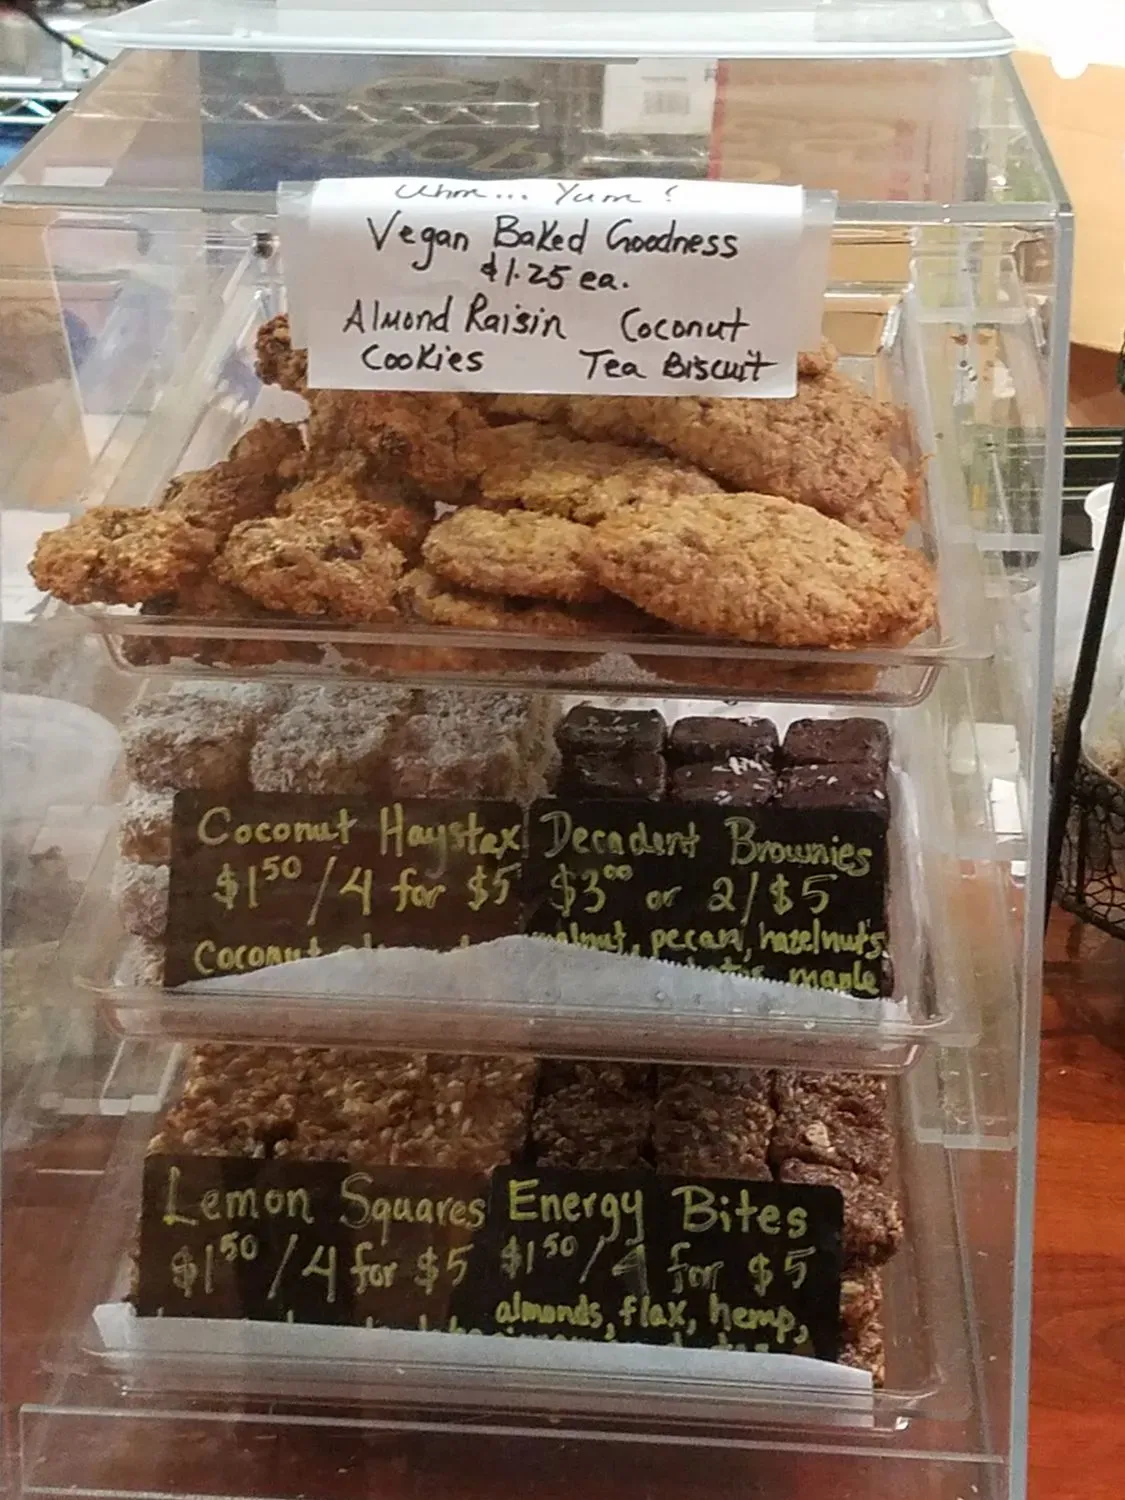 Uhm... Yum!
Vegan Baked Goodness
$1.25 ea.
Almond Raisin Cookies
Coconut Tea Biscuit
Coconut Haystax
$1.50 / 4 for $5
Coconut
Decadent Brownies
$3.00 or 2/$5
walnut, pecan, hazelnuts,
maple
Lemon Squares
$1.50 / 4 for $5
Energy Bites
$1.50 / 4 for $5
almonds, flax, hemp,